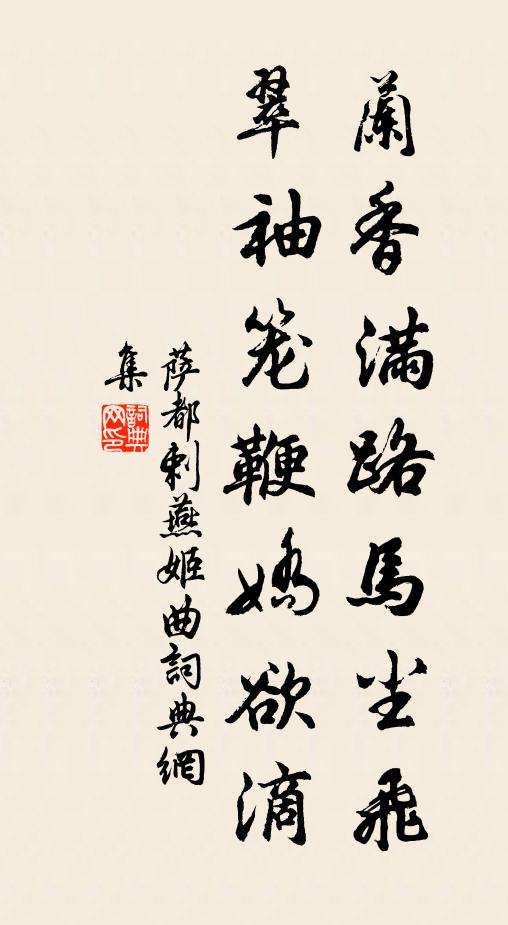 蘭香滿路馬尘飛
翠袖笼鞭嬌欲滴
萨都剌燕姬曲詞典網
集
詞典
网印